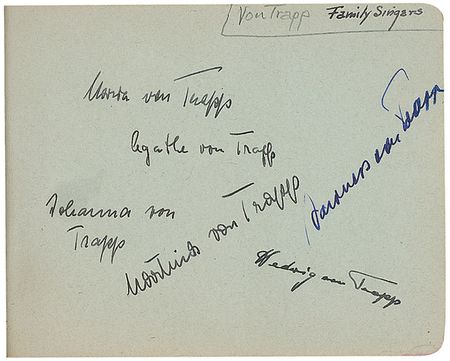 Von Trapp Family Singers
Maria von Trapp
Agathe von Trapp
von Trapp
Johanna von
Trapp
Martina von Trapp
Hedwig von Trapp